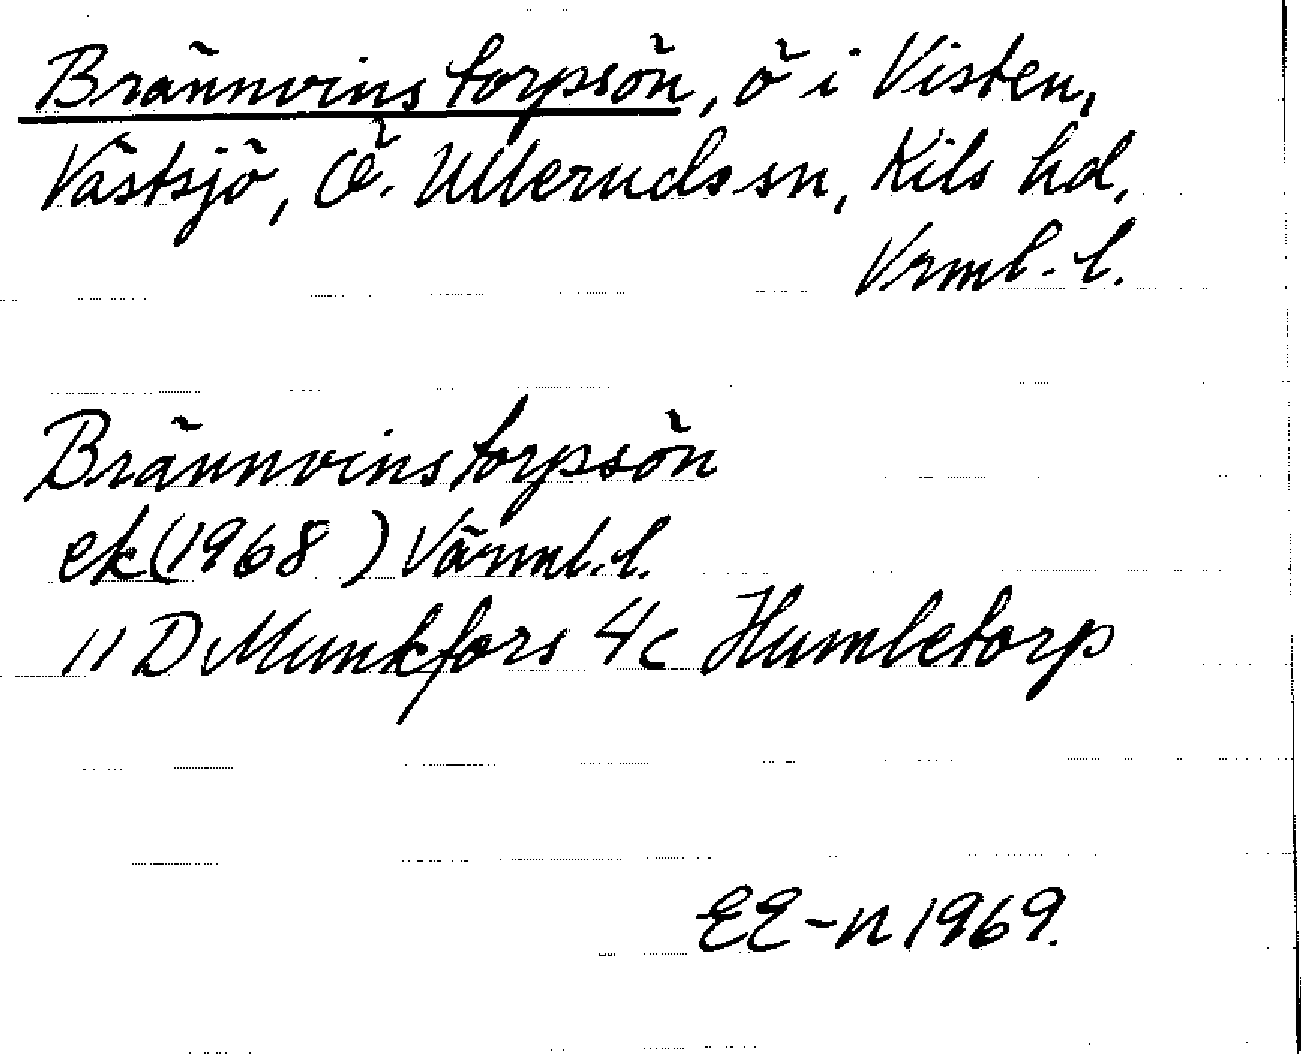 Brännvinstorpsön, ö i Visten,
Västsjö, Ö. Ulleruds sn, Kils hd,
Vrml. l.
Brännvinstorpsön
ek (1968) Värml. l.
11 D Munkfors 4c Humletorp
EE-n 1969.